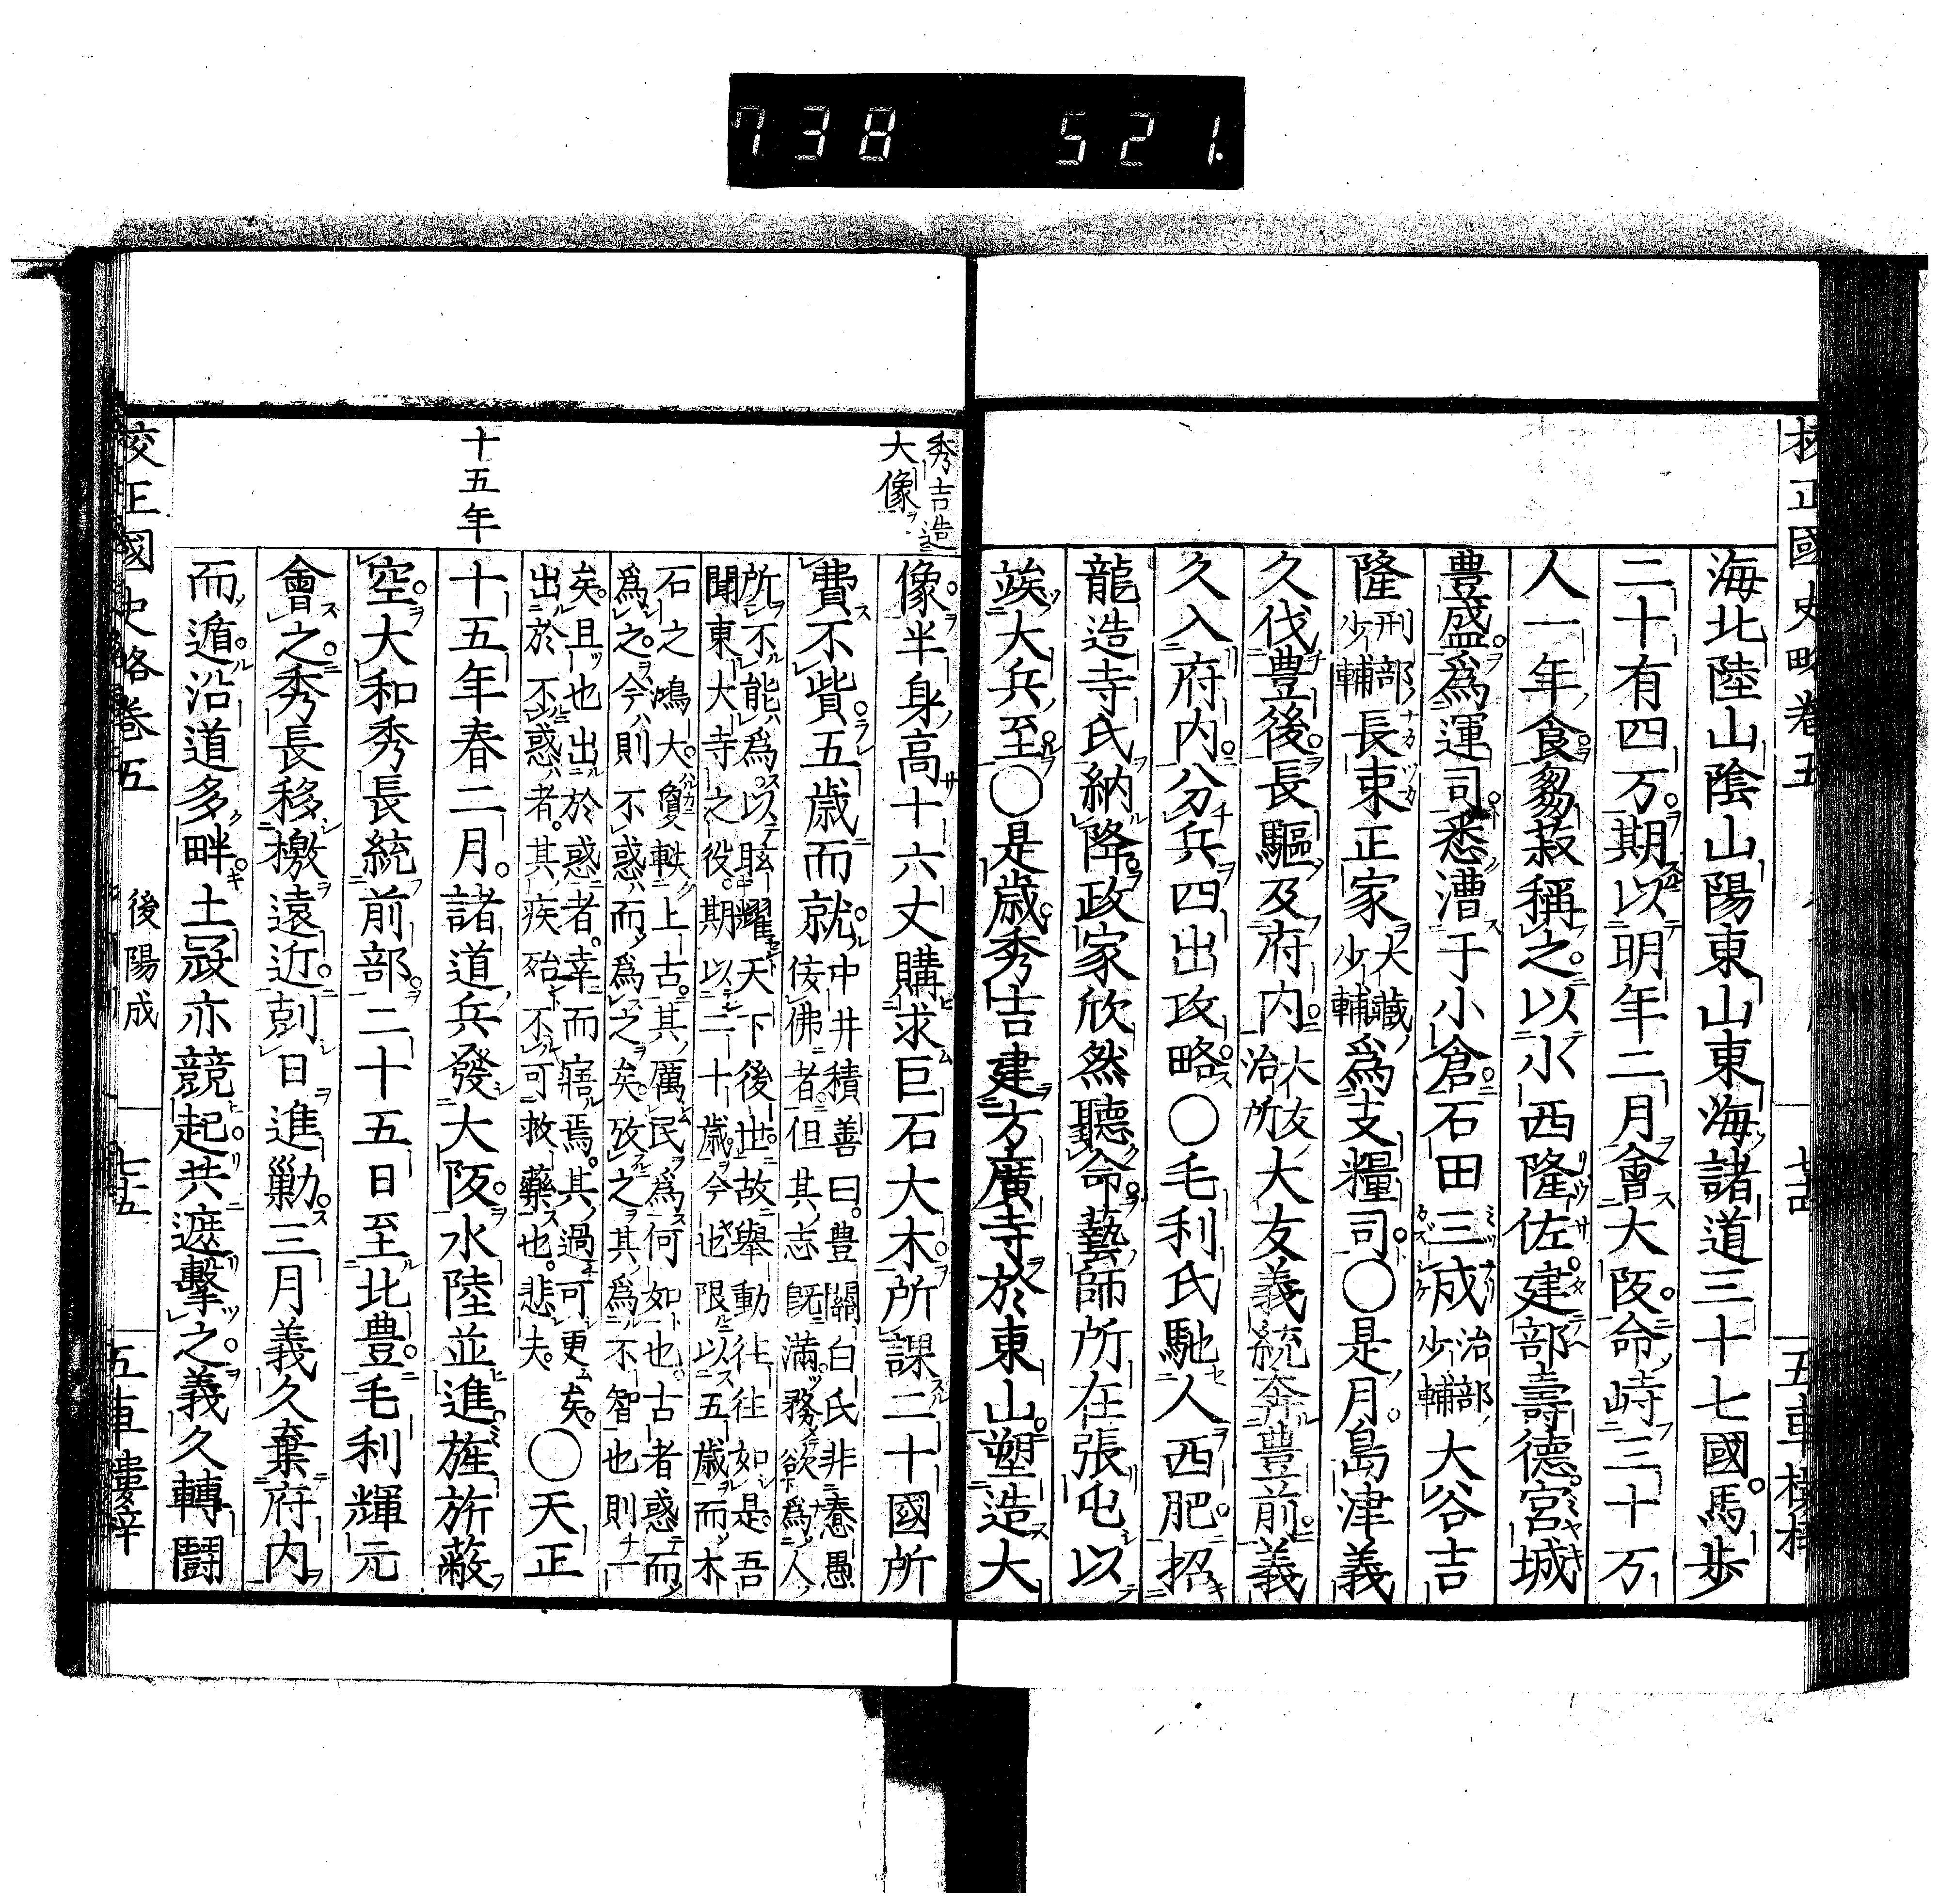 738 521.
校正國史略卷五
七十四
五車樓梓
海北陸山陰山陽東山東海諸道三十七國馬歩
二十有四万期以明年二月會大阪命峙三十万
人一年食芻菽稱之以小西隆佐建部壽德宮城
豊盛爲運司悉漕于小倉石田三成治部少輔大谷吉
隆刑部少輔長束正家大藏少輔爲支糧司〇是月島津義
久伐豊後長驅及府内大友治所大友義統奔豊前義
久入府内分兵四出攻略〇毛利氏馳人西肥招
龍造寺氏納降政家欣然聽命藝師所在張屯以
竢大兵至〇是歳秀吉建方廣寺於東山塑造大
秀吉造
大像
像半身高十六丈購求巨石大木所課二十國所
費不貲五歳而就中井積善曰豊關白氏非惷愚侫佛者但其志既滿務欲爲人
所不能爲以眩耀天下後世故舉動往往如是吾聞東大寺之役期以二十歳今也限以五歳而木
石之鴻大夐軼上古其厲民爲何如也古者惑而爲之今則不惑而爲之矣攷之其爲不智也則一
矣且也出於惑者幸而寤焉其過可更矣出於不惑者其疾殆不可救藥也悲夫〇天正
十五年
十五年春二月諸道兵發大阪水陸並進旌旂蔽
空大和秀長統前部二十五日至北豊毛利輝元
會之秀長移檄遠近剋日進勦三月義久棄府内
而遁沿道多畔土冦亦競起共遮擊之義久轉鬪
校正國史略卷五
後陽成
七十五
五車樓梓